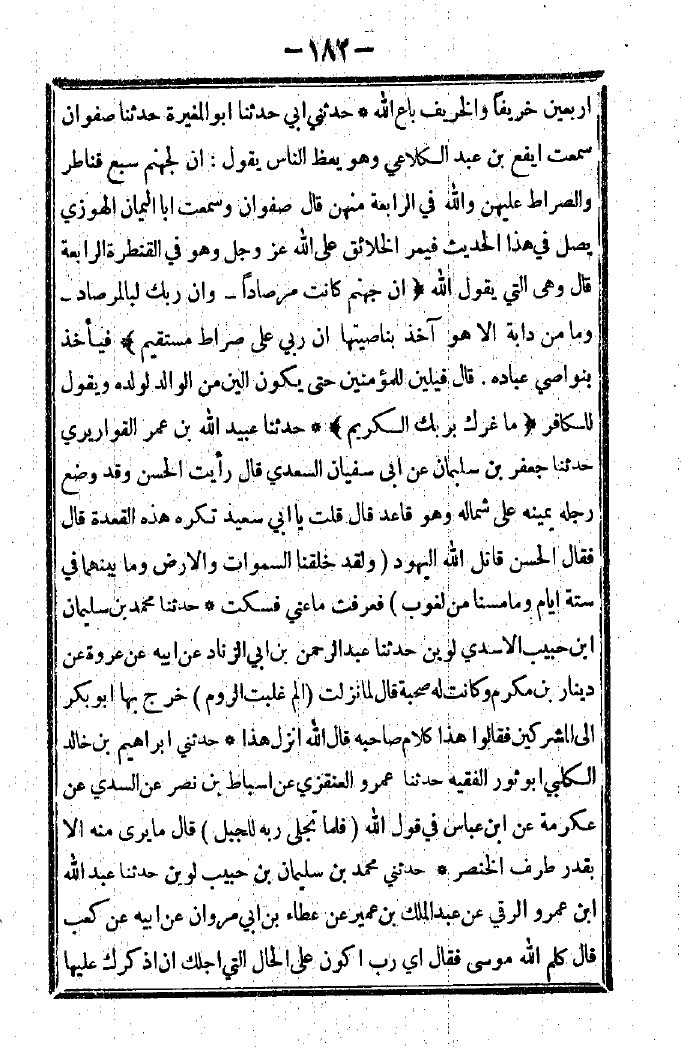 -١٨٢-
اربعين خريفاً والخريف باع الله * حدثني ابي حدثنا ابو المغيرة حدثنا صفوان
سمعت ايفع بن عبد الكلاعي وهو يعظ الناس يقول : ان لجهنم سبع قناطر
والصراط عليهن والله في الرابعة منهن قال صفوان وسمعت ابا اليمان الهوزي
يصل في هذا الحديث فيمر الخلائق على الله عز وجل وهو في القنطرة الرابعة
قال وهى التي يقول الله ﴿ ان جهنم كانت مرصاداً ـ وان ربك لبالمرصاد ـ
وما من دابة الا هو آخذ بناصيتها ان ربي على صراط مستقيم ﴾ فيأخذ
بنواصي عباده . قال فيلين للمؤمنين حتى يكون الين من الوالد لولده ويقول
للكافر ﴿ ما غرك بربك الكريم ﴾ * حدثنا عبيد الله بن عمر القواريري
حدثنا جعفر بن سليمان عن ابى سفيان السعدي قال رأيت الحسن وقد وضع
رجله يمينه على شماله وهو قاعد قال قلت يا ابي سعيد تكره هذه القعدة قال
فقال الحسن قاتل الله اليهود ( ولقد خلقنا السموات والارض وما بينهما في
ستة ايام وما مسنا من لغوب ) فعرفت ما عني فسكت * حدثنا محمد بن سليمان
ابن حبيب الاسدي لوين حدثنا عبد الرحمن بن ابي الزناد عن ابيه عن عروة عن
دينار بن مكرم وكانت له صحبة قال لما نزلت (الم غلبت الروم ) خرج بها ابو بكر
الى المشركين فقالوا هذا كلام صاحبه قال الله انزل هذا * حدثني ابراهيم بن خالد
الكلبي ابو ثور الفقيه حدثنا عمرو العنقزي عن اسباط بن نصر عن السدي عن
عكرمة عن ابن عباس في قول الله ( فلما تجلى ربه للجبل ) قال ما يرى منه الا
بقدر طرف الخنصر * حدثني محمد بن سليمان بن حبيب لوين حدثنا عبد الله
ابن عمرو الرقي عن عبد الملك بن عمير عن عطاء بن ابي مروان عن ابيه عن كعب
قال كلم الله موسى فقال اي رب اكون على الحال التي اجلك ان اذكرك عليها